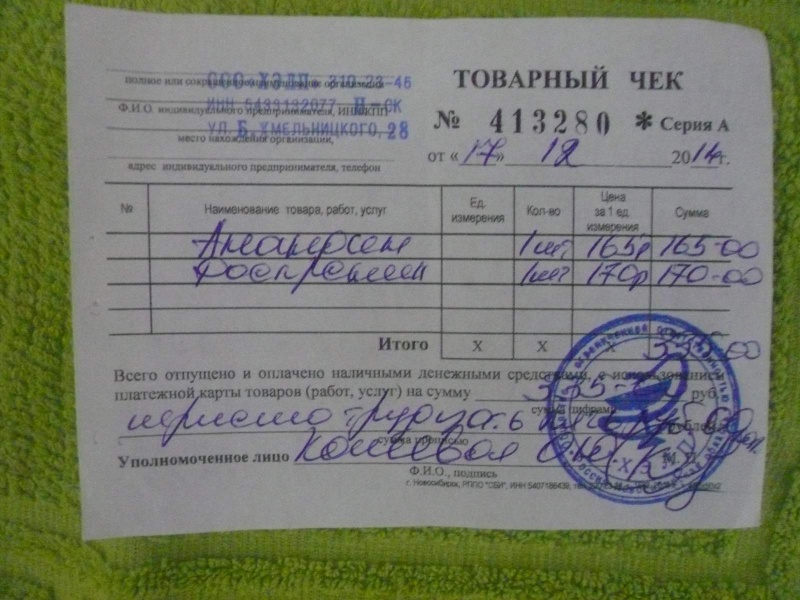 ООО ХЭЛП 310-23-45
полное или сокращенное наименование организации
ИНН 5433132077 Н-СК
Ф.И.О. индивидуального предпринимателя, ИНН/КПП
УЛ. Б. ХМЕЛЬНИЦКОГО, 28
место нахождения организации,
адрес индивидуального предпринимателя, телефон
ТОВАРНЫЙ ЧЕК
№ 413280 * Серия А
от «17» 12 2014г.
№ Наименование товара, работ, услуг Ед. измерения Кол-во Цена за 1 ед. измерения Сумма
1шт 165р 165-00
1шт 170р 170-00
Итого X X X 335-00
Всего отпущено и оплачено наличными денежными средствами, с использованием
платежной карты товаров (работ, услуг) на сумму 335- руб.
сумма цифрами
триста тридцать
сумма прописью
Уполномоченное лицо
Ф.И.О., подпись
г. Новосибирск, РППО "СБИ", ИНН 5407186439,